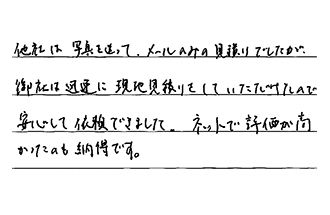 他社は写真を送って、メールのみの見積りでしたが、
御社は迅速に現地見積りをしていただけたので
安心して依頼できました。ネットで評価が高
かったのも納得です。